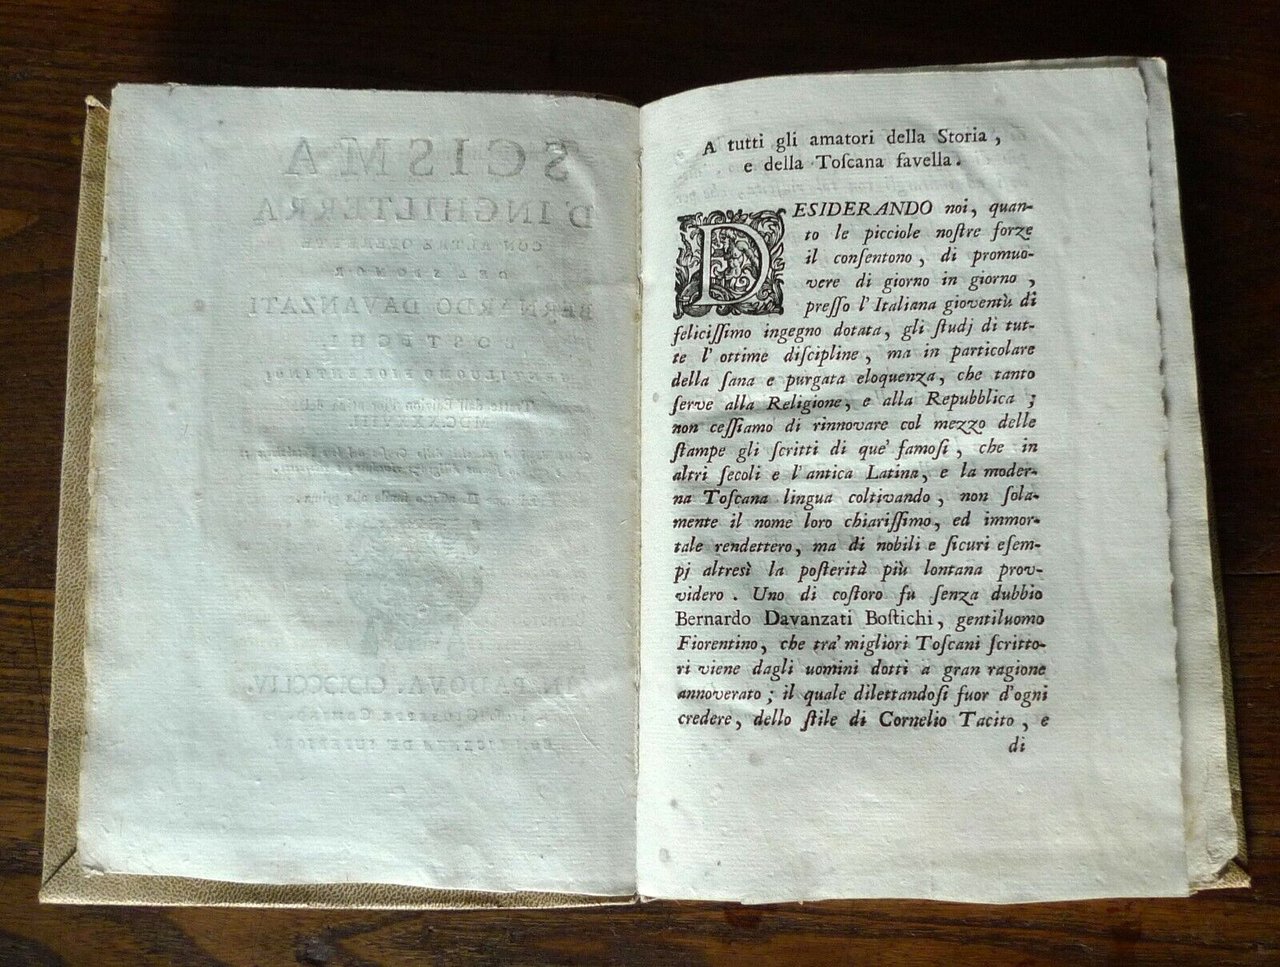 SCISMA
D'INGHILTERRA
CON ALTRE OPERETTE
DEL SIGNOR
BERNARDO DAVANZATI
BOSTICHI,
GENTILUOMO FIORENTINO;
MDCXXXVIII.
IN PADOVA. CIƆIƆCCLIV.
A tutti gli amatori della Storia,
e della Toſcana favella.
DESIDERANDO noi, quan-
to le picciole noſtre forze
il conſentono, di promuo-
vere di giorno in giorno,
preſſo l'Italiana gioventù di
feliciſſimo ingegno dotata, gli ſtudj di tut-
te l'ottime diſcipline, ma in particolare
della ſana e purgata eloquenza, che tanto
ſerve alla Religione, e alla Repubblica;
non ceſſiamo di rinnovare col mezzo delle
ſtampe gli ſcritti di que' famoſi, che in
altri ſecoli e l'antica Latina, e la moder-
na Toſcana lingua coltivando, non ſola-
mente il nome loro chiariſſimo, ed immor-
tale rendettero, ma di nobili e ſicuri eſem-
pj altresì la poſterità più lontana prov-
videro. Uno di coſtoro fù ſenza dubbio
Bernardo Davanzati Boſtichi, gentiluomo
Fiorentino, che tra' migliori Toſcani ſcritto-
ri viene dagli uomini dotti a gran ragione
annoverato; il quale dilettandoſi fuor d'ogni
credere, dello ſtile di Cornelio Tacito, e
di